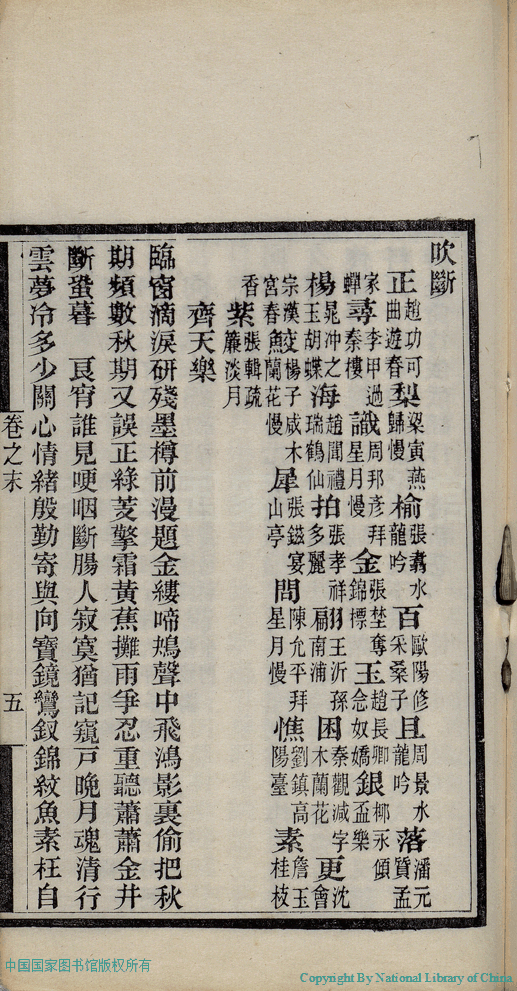 吹斷
正趙功可曲遊春梨梁寅燕歸慢榆張翥水龍吟百歐陽修采桑子且周景水龍吟落潘元質孟
家蟬尋李甲過秦樓識周邦彥拜星月慢金張埜奪錦標玉趙長卿念奴嬌銀柳永傾盃樂
楊晁沖之玉胡蝶海趙聞禮瑞鶴仙拍張孝祥多麗翩王沂孫南浦困秦觀減字木蘭花更沈會
宗漢宮春楊子咸木蘭花慢犀張鎡宴山亭問陳允平拜星月慢憔劉鎮高陽臺素詹玉桂枝
香紫張輯疏簾淡月
齊天樂
臨窗滴淚研殘墨樽前漫題金縷啼鴂聲中飛鴻影裏偷把秋
期頻數秋期又誤正綠芰擎霜黃蕉攤雨爭忍重聽蕭蕭金井
斷蛩暮 良宵誰見哽咽斷腸人寂寞猶記窺戶晚月魂清行
雲夢冷多少關心情緒殷勤寄與向寶鏡鸞釵錦紋魚素枉自
卷之末
五
中国国家图书馆版权所有
Copyright By National Library of China